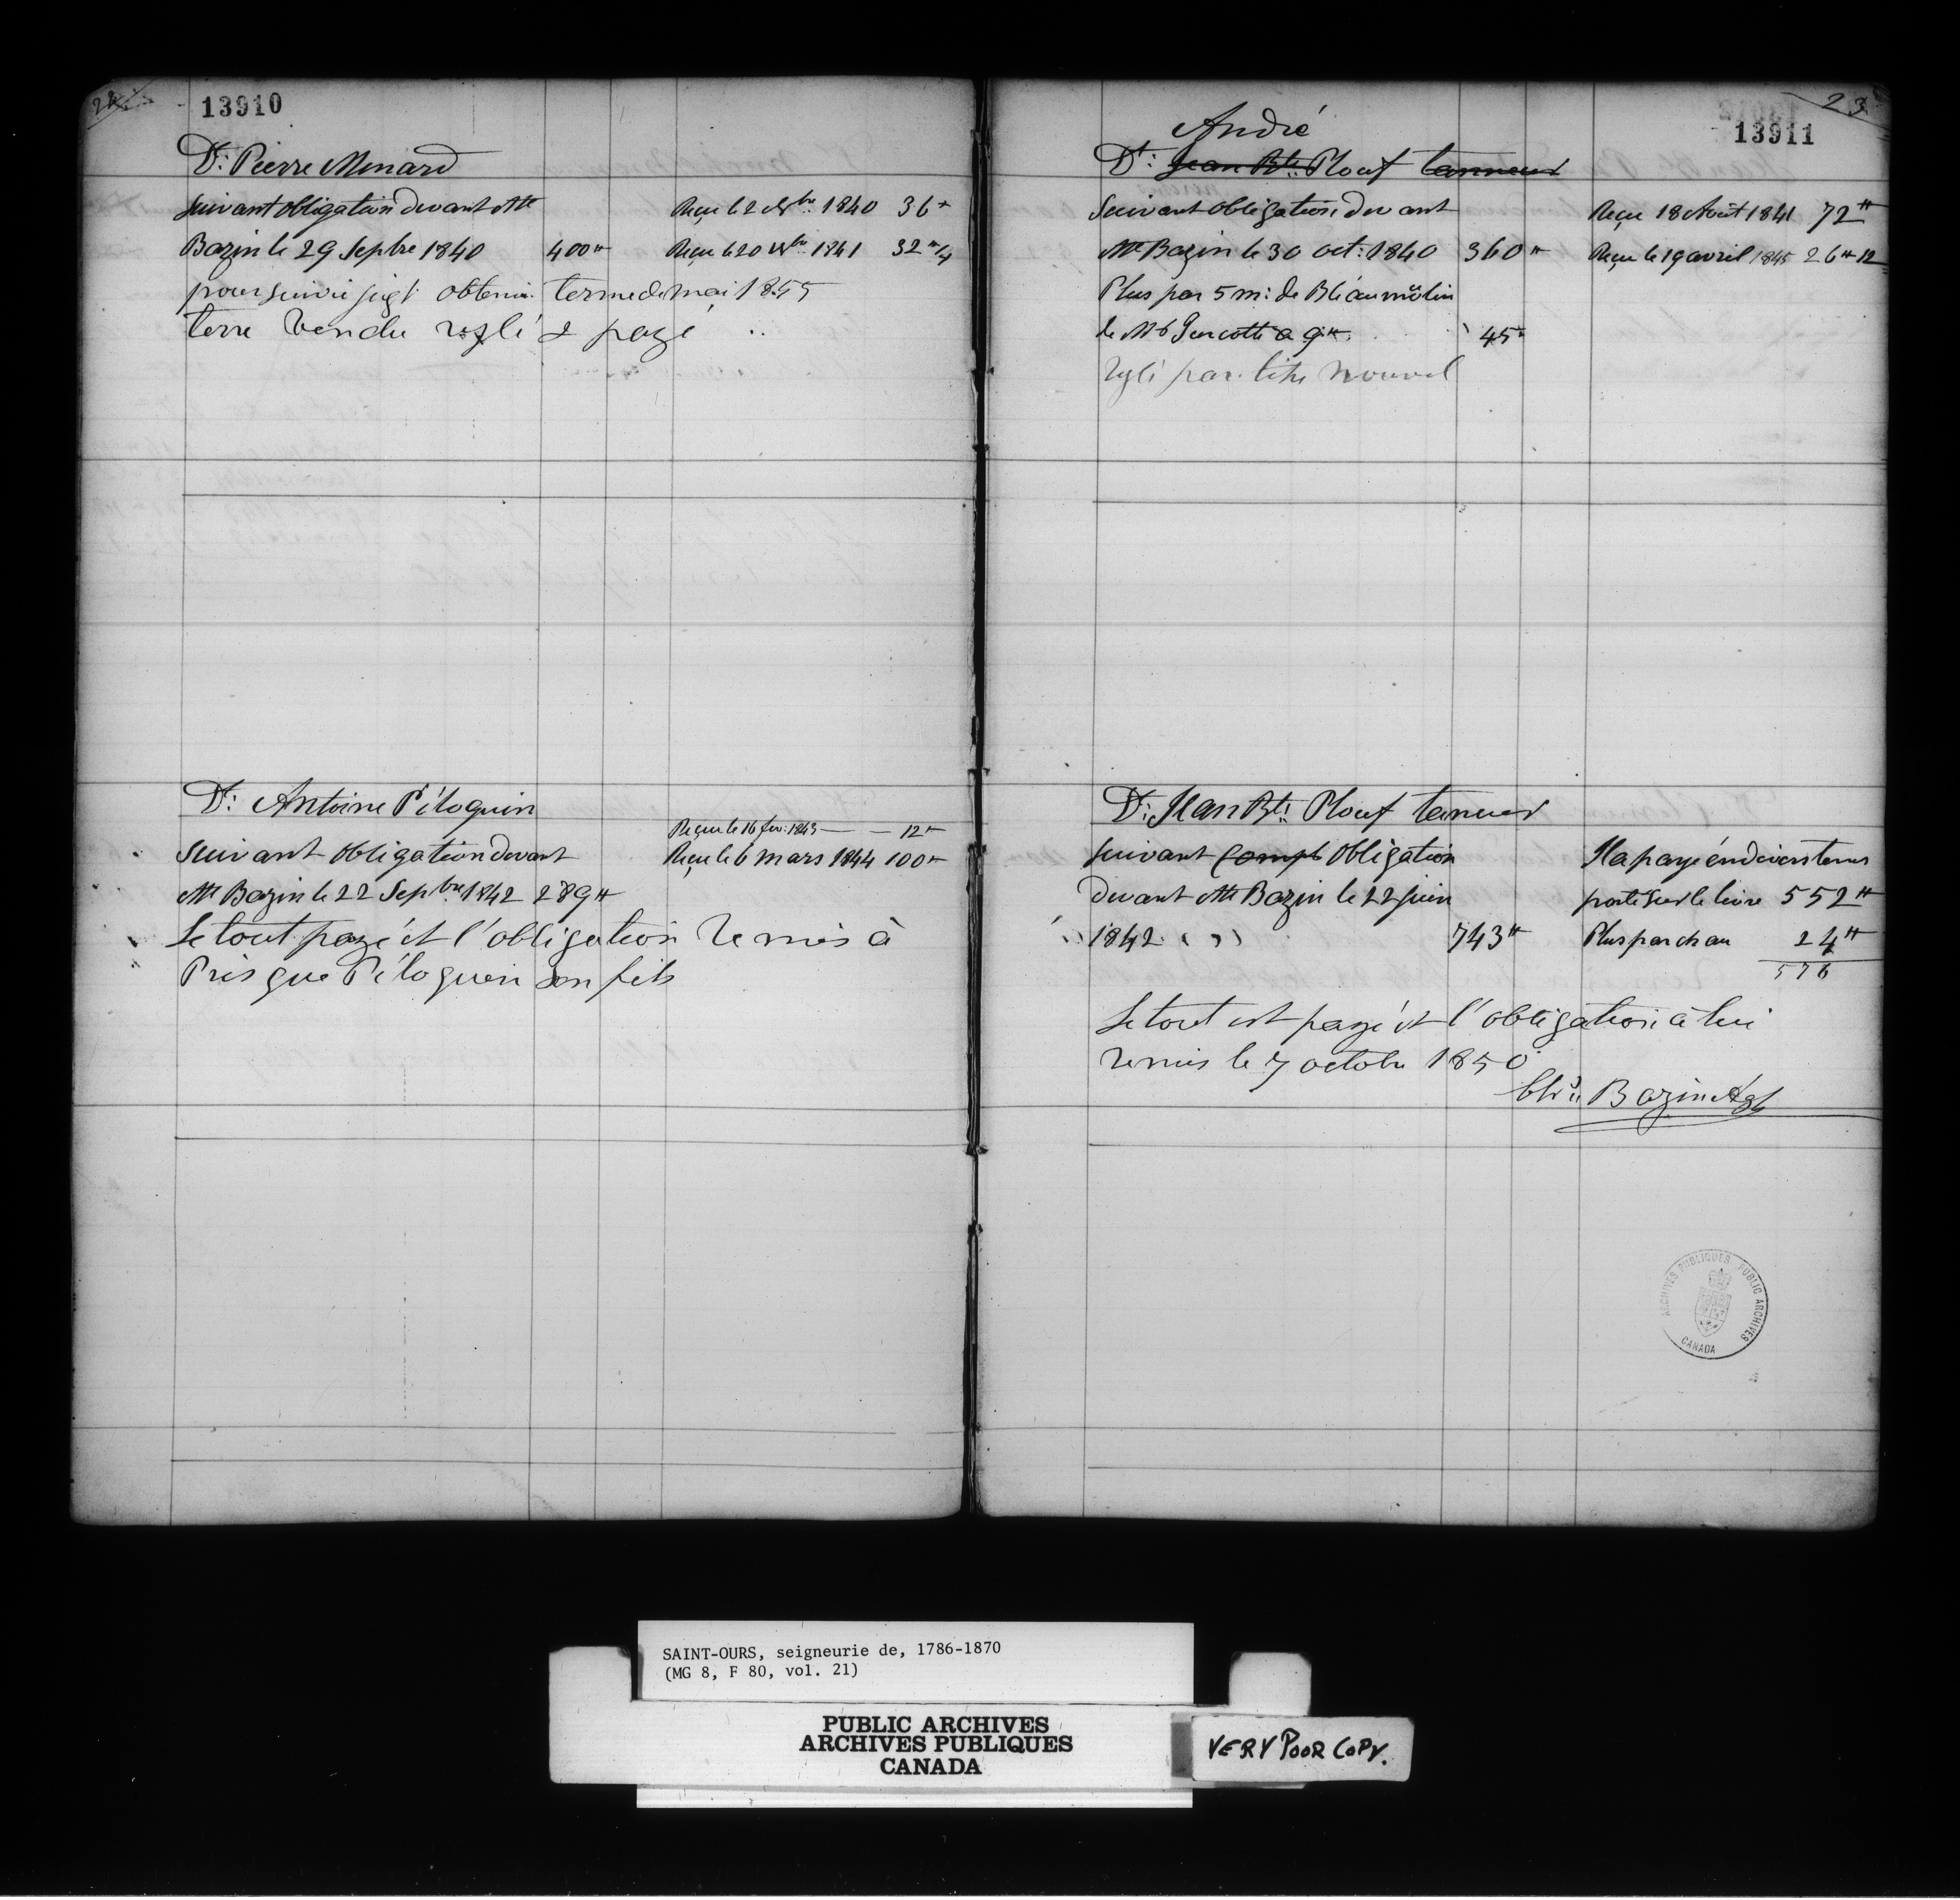 13910
Dt: Pierre Menard
Suivant obligation devant Mtre Reçu le 2 Nbre 1840 36#
Bazin le 29 Septbre 1840 400# Reçu le 20 1841 32#/4
poursuivi jugt obtenu terme de mai 1855
terre vendu réglé & payé
Dt: Antoine Péloquin
Reçu le 16 fev: 1843 — — 12#
Suivant obligation devant Reçu le 6 mars 1844 100#
Mtre Bazin le 22 Septbre 1842 289#
Le tout payé et l'obligation remis à
Prisque Péloquin son fils
23
13911
André
Dt: Jean Bte: Plouf tanneur
Suivant obligation devant Reçu 18 Août 1841 72#
Mtre Bazin le 30 oct: 1840 360# Reçu le 19 avril 1845 26# 12
Plus par 5 m: de Blé au mo͞ulin
de Mr Turcotte a 9#. 45#
réglé par titre nouvel
Dt: Jean Bte: Plouf taneur
Suivant Compt obligation Il a payé en divers tems
devant Mtre Bazin le 22 juin porté sur le livre 552#
1842 743# Plus par ch au 24#
576
Le tout est payé et l'obligation à lui
remis le 7 octobre 1850
Chs: Bazin Agt
ARCHIVES PUBLIQUES PUBLIC ARCHIVES
CANADA
SAINT-OURS, seigneurie de, 1786-1870
(MG 8, F 80, vol. 21)
PUBLIC ARCHIVES
ARCHIVES PUBLIQUES
CANADA
VERY POOR COPY.